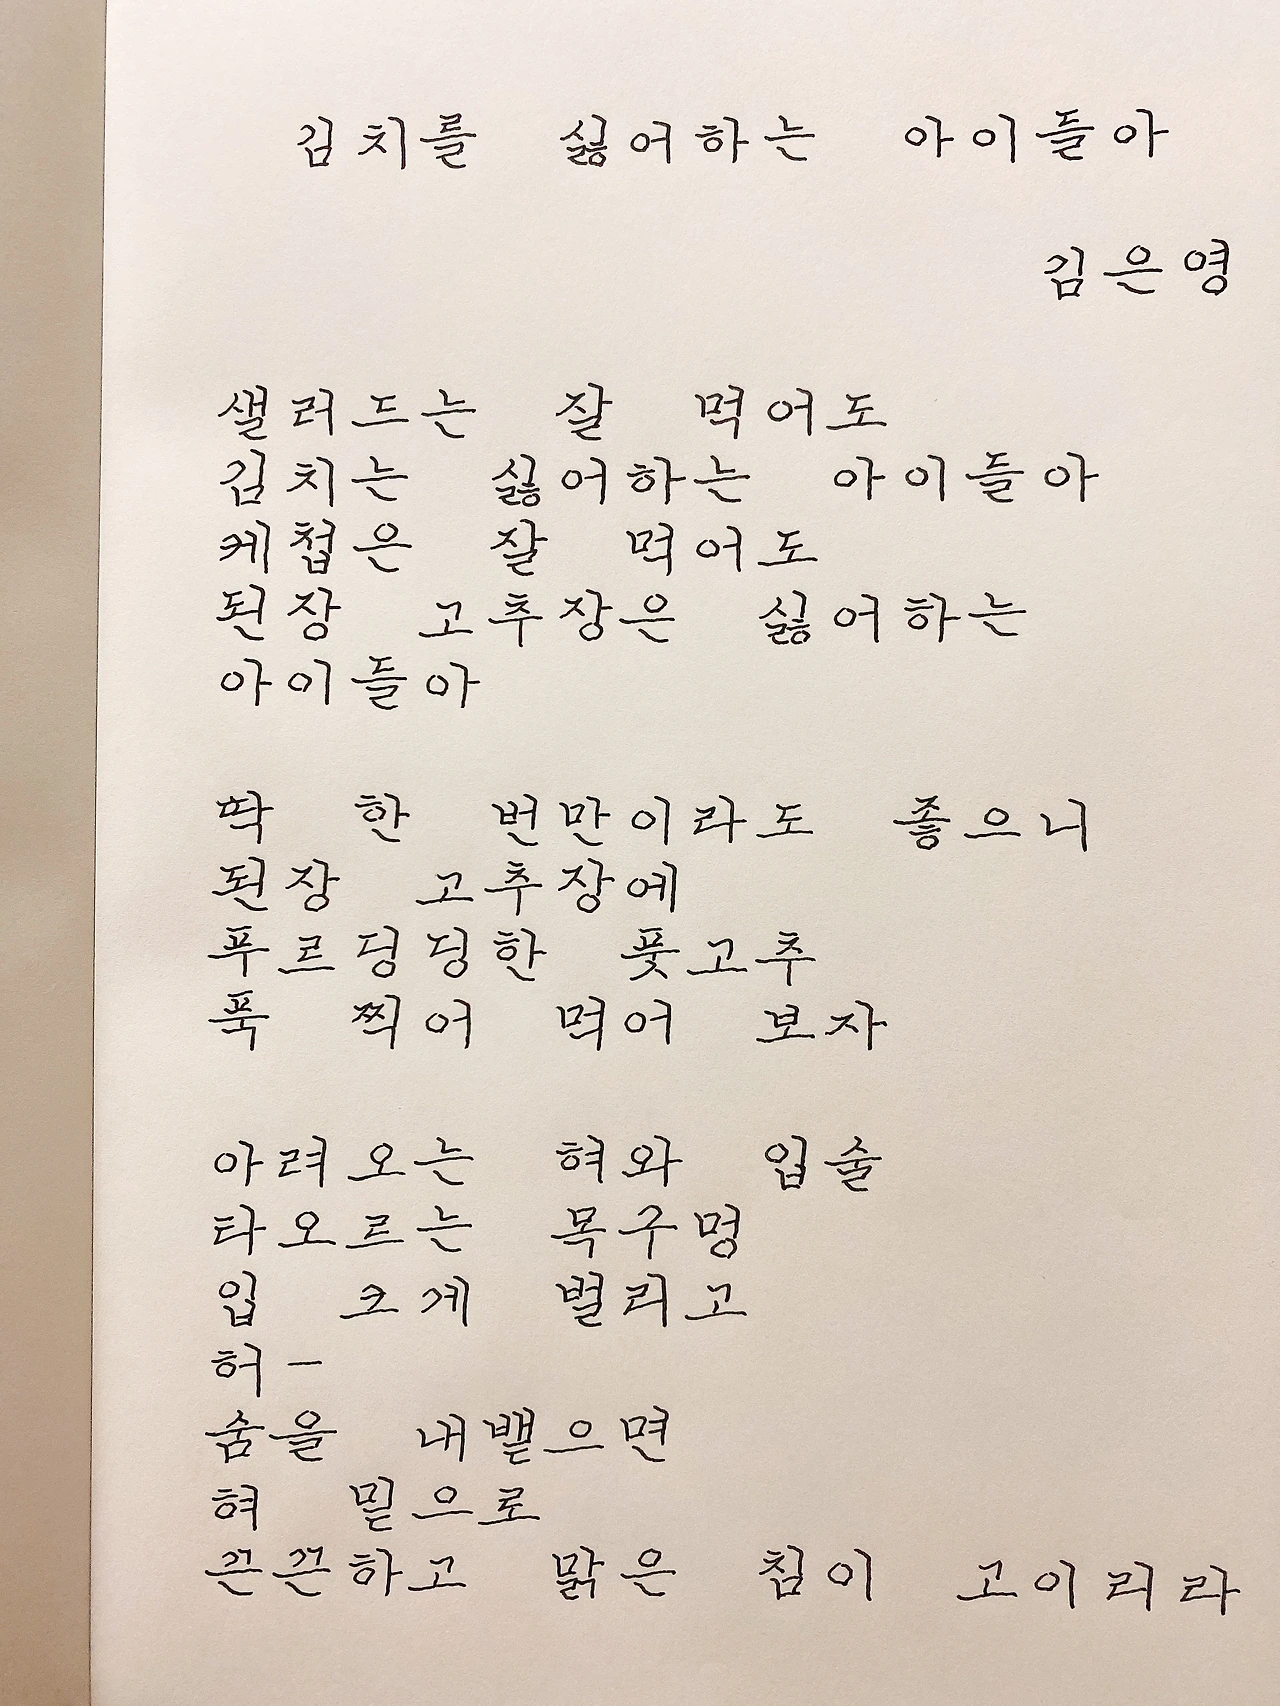 김치를 싫어하는 아이들아
김은영
샐러드는 잘 먹어도
김치는 싫어하는 아이들아
케첩은 잘 먹어도
된장 고추장은 싫어하는
아이들아
딱 한 번만이라도 좋으니
된장 고추장에
푸르딩딩한 풋고추
푹 찍어 먹어 보자
아려오는 혀와 입술
타오르는 목구멍
입 크게 벌리고
허-
숨을 내뱉으면
혀 밑으로
끈끈하고 맑은 침이 고이리라